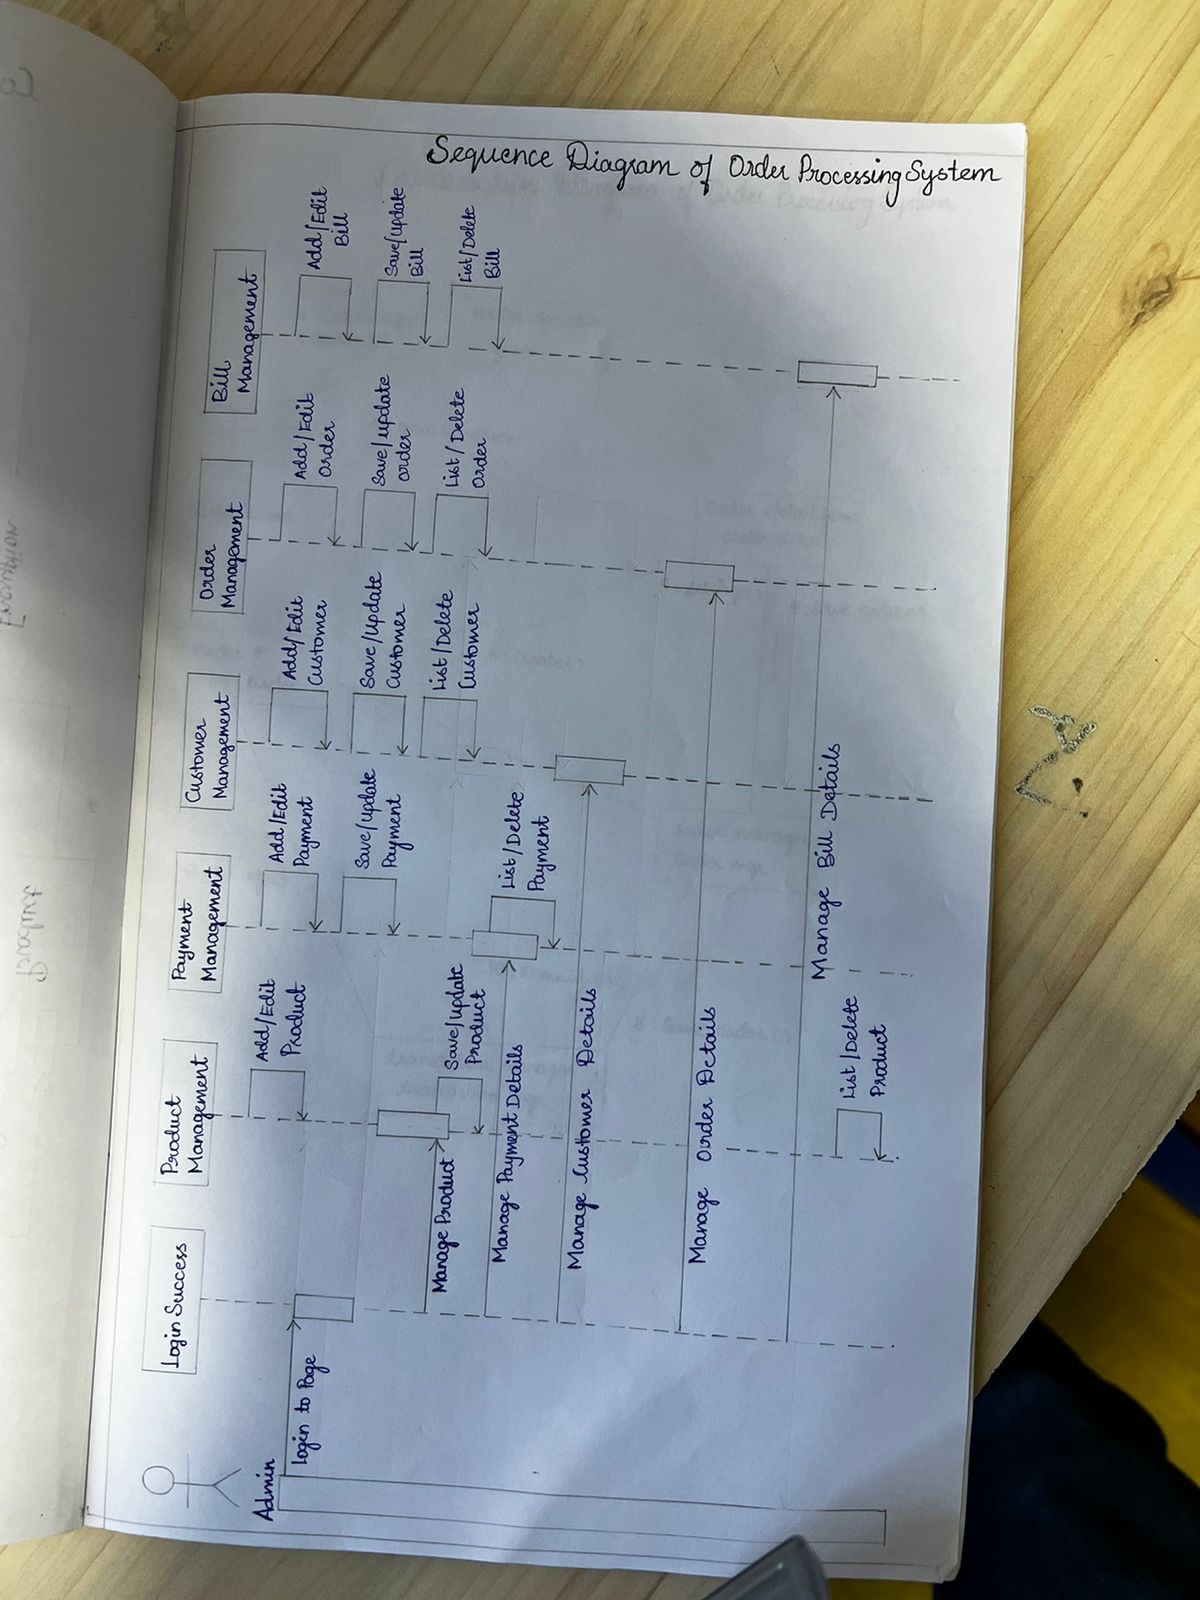 Sequence Diagram of Order Processing System
Admin
Login Success
Product
Management
Payment
Management
Customer
Management
Order
Management
Bill
Management
Login to Page
Add/Edit
Product
Add/Edit
Payment
Add/Edit
Customer
Add/Edit
Order
Add/Edit
Bill
Save/Update
Payment
Save/Update
Customer
Save/update
order
Save/update
Bill
Manage Product
Save/update
Product
List/Delete
Customer
List/Delete
Order
List/Delete
Bill
Manage Payment Details
List/Delete
Payment
Manage Customer Details
Manage Order Details
Manage Bill Details
List/Delete
Product